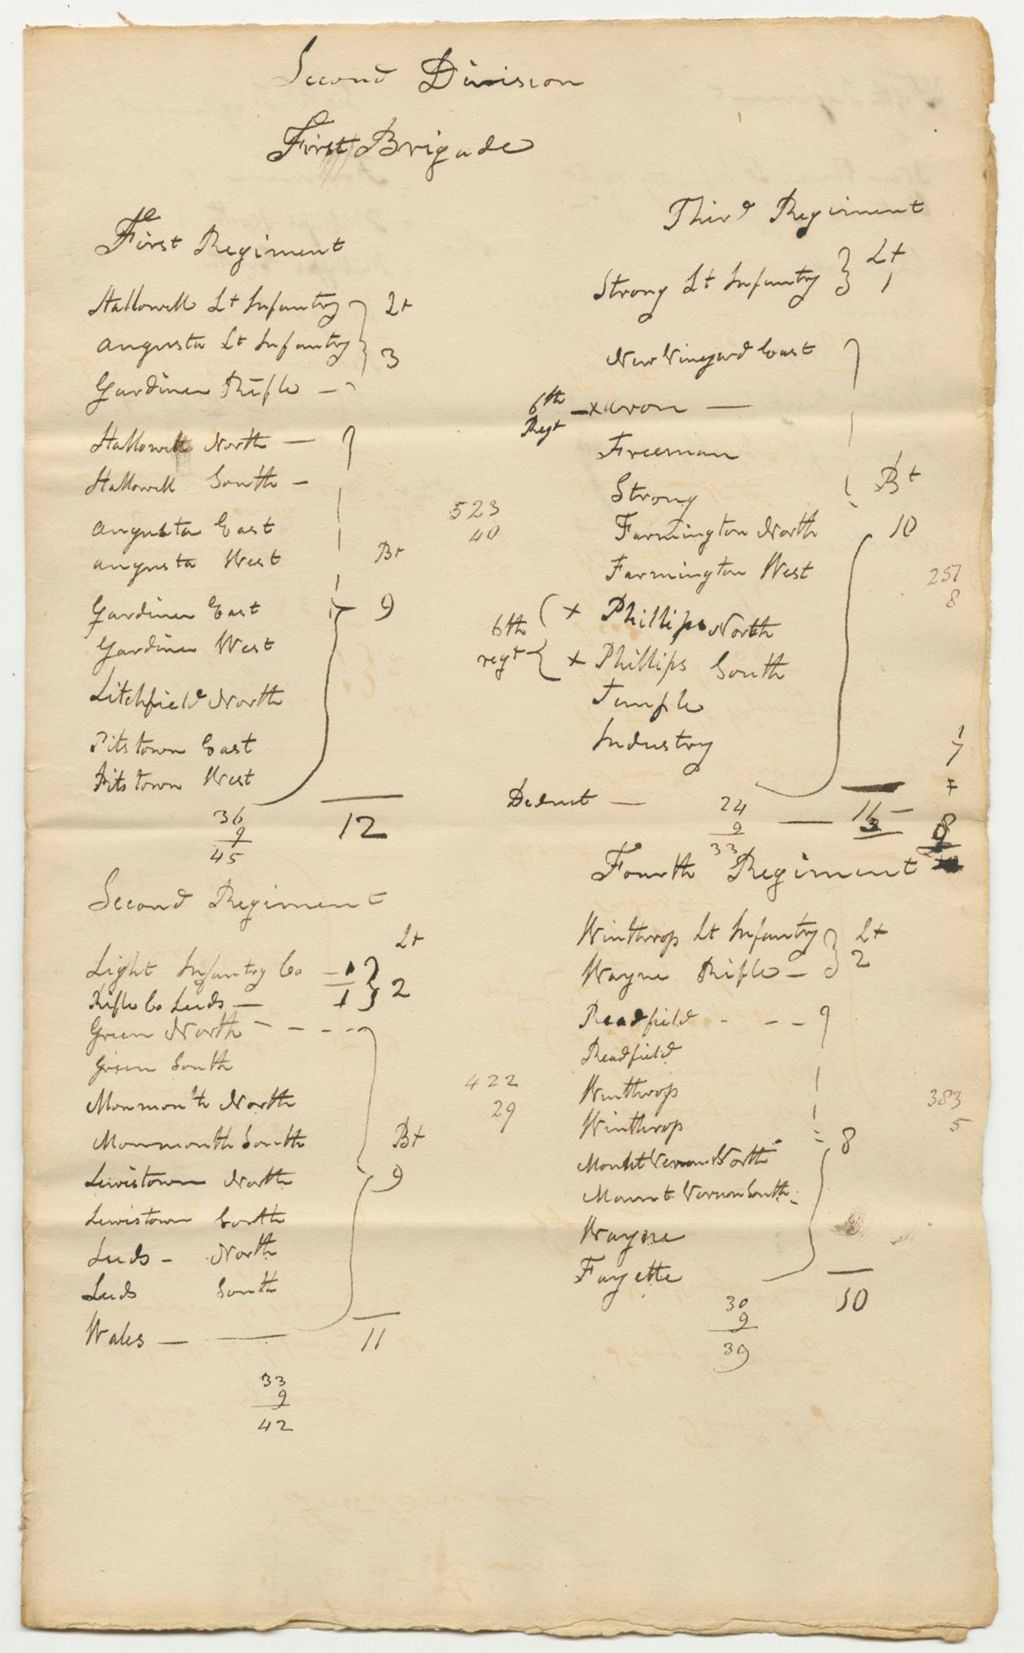 Second Division
First Brigade
First Regiment
Hallowell Lt Infantry
Lt
Augusta Lt Infantry
3
Gardiner Rifle —
Hallowell North —
Hallowell South —
Augusta East
Augusta West
Bt
Gardiner East
9
Gardiner West
Litchfield North
Pitstown East
Pitstown West
36
9
45
12
523
40
Second Regiment
Lt
Light Infantry Co — 1
Rifle Co Leeds — 1
2
Green North - - - -
Green South
Monmouth North
Monmouth South
Bt
Lewistown North
9
Lewistown South
Leeds - North
Leeds South
Wales —
11
33
9
42
422
29
Third Regiment
Strong Lt Infantry
Lt
1
New Vineyard East
6th Regt
x Avon —
Freeman
Strong
Bt
Farmington North
10
Farmington West
257
8
6th regt
x Phillips North
x Phillips South
Temple
Industry
1
7
Deduct —
24
9
33
— 11 —
3
8
Fourth Regiment
Winthrop Lt Infantry
Lt
Wayne Rifle —
2
Readfield - - -
Readfield
Winthrop
Winthrop
383
5
8
Mount Vernon North
Mount Vernon South
Wayne
Fayette
10
30
9
39